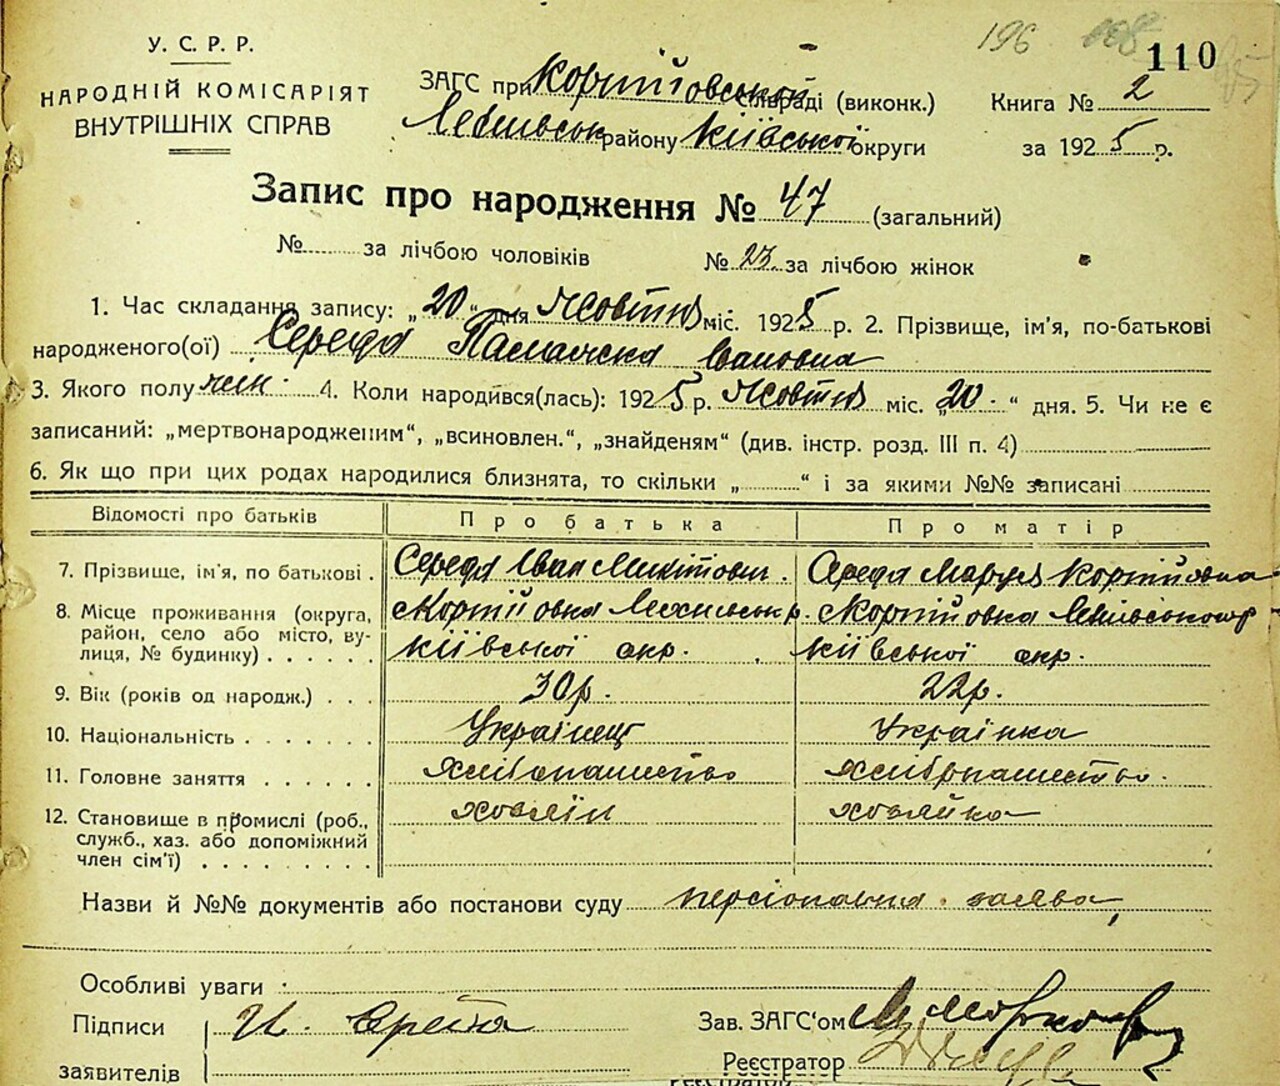 196 108 110
У. С. Р. Р.
НАРОДНІЙ КОМІСАРІЯТ
ВНУТРІШНІХ СПРАВ
ЗАГС при Корнійовської сільраді (виконк.)
районy Київської округи
Книга № 2
за 1925 р.
Запис про народження № 47 (загальний)
№ за лічбою чоловіків № 23 за лічбою жінок
1. Час складання запису: „20“ дня жовтня міс. 1925 р. 2. Прізвище, ім'я, по-батькові
народженого(ої) Середа Палажка Івановна
3. Якого полу жін. 4. Коли народився(лась): 1925 р. жовтня міс. „20.“ дня. 5. Чи не є
записаний: „мертвонародженим“, „всиновлен.“, „знайденям“ (див. інстр. розд. III п. 4)
6. Як що при цих родах народилися близнята, то скільки „ “ і за якими №№ записані
Відомості про батьків Про батька Про матір
7. Прізвище, ім'я, по батькові. Середа Іван Микітович. Середа Марія Корнійовна
8. Місце проживання (округа, район, село або місто, вулиця, № будинку) Корнійовка р. Корнійовка
Київської окр. Київської окр.
9. Вік (років од народж.) 30 р. 22 р.
10. Національність Українец Українка
11. Головне заняття Хлібопашество Хлібопашество.
12. Становище в промислі (роб., хозяін хозяйка
служб., хаз. або допоміжний
член сім'ї)
Назви й №№ документів або постанови суду персональна заява,
Особливі уваги
Підписи И. Середа
заявителів
Зав. ЗАГС'ом
Реєстратор
Реєстратор